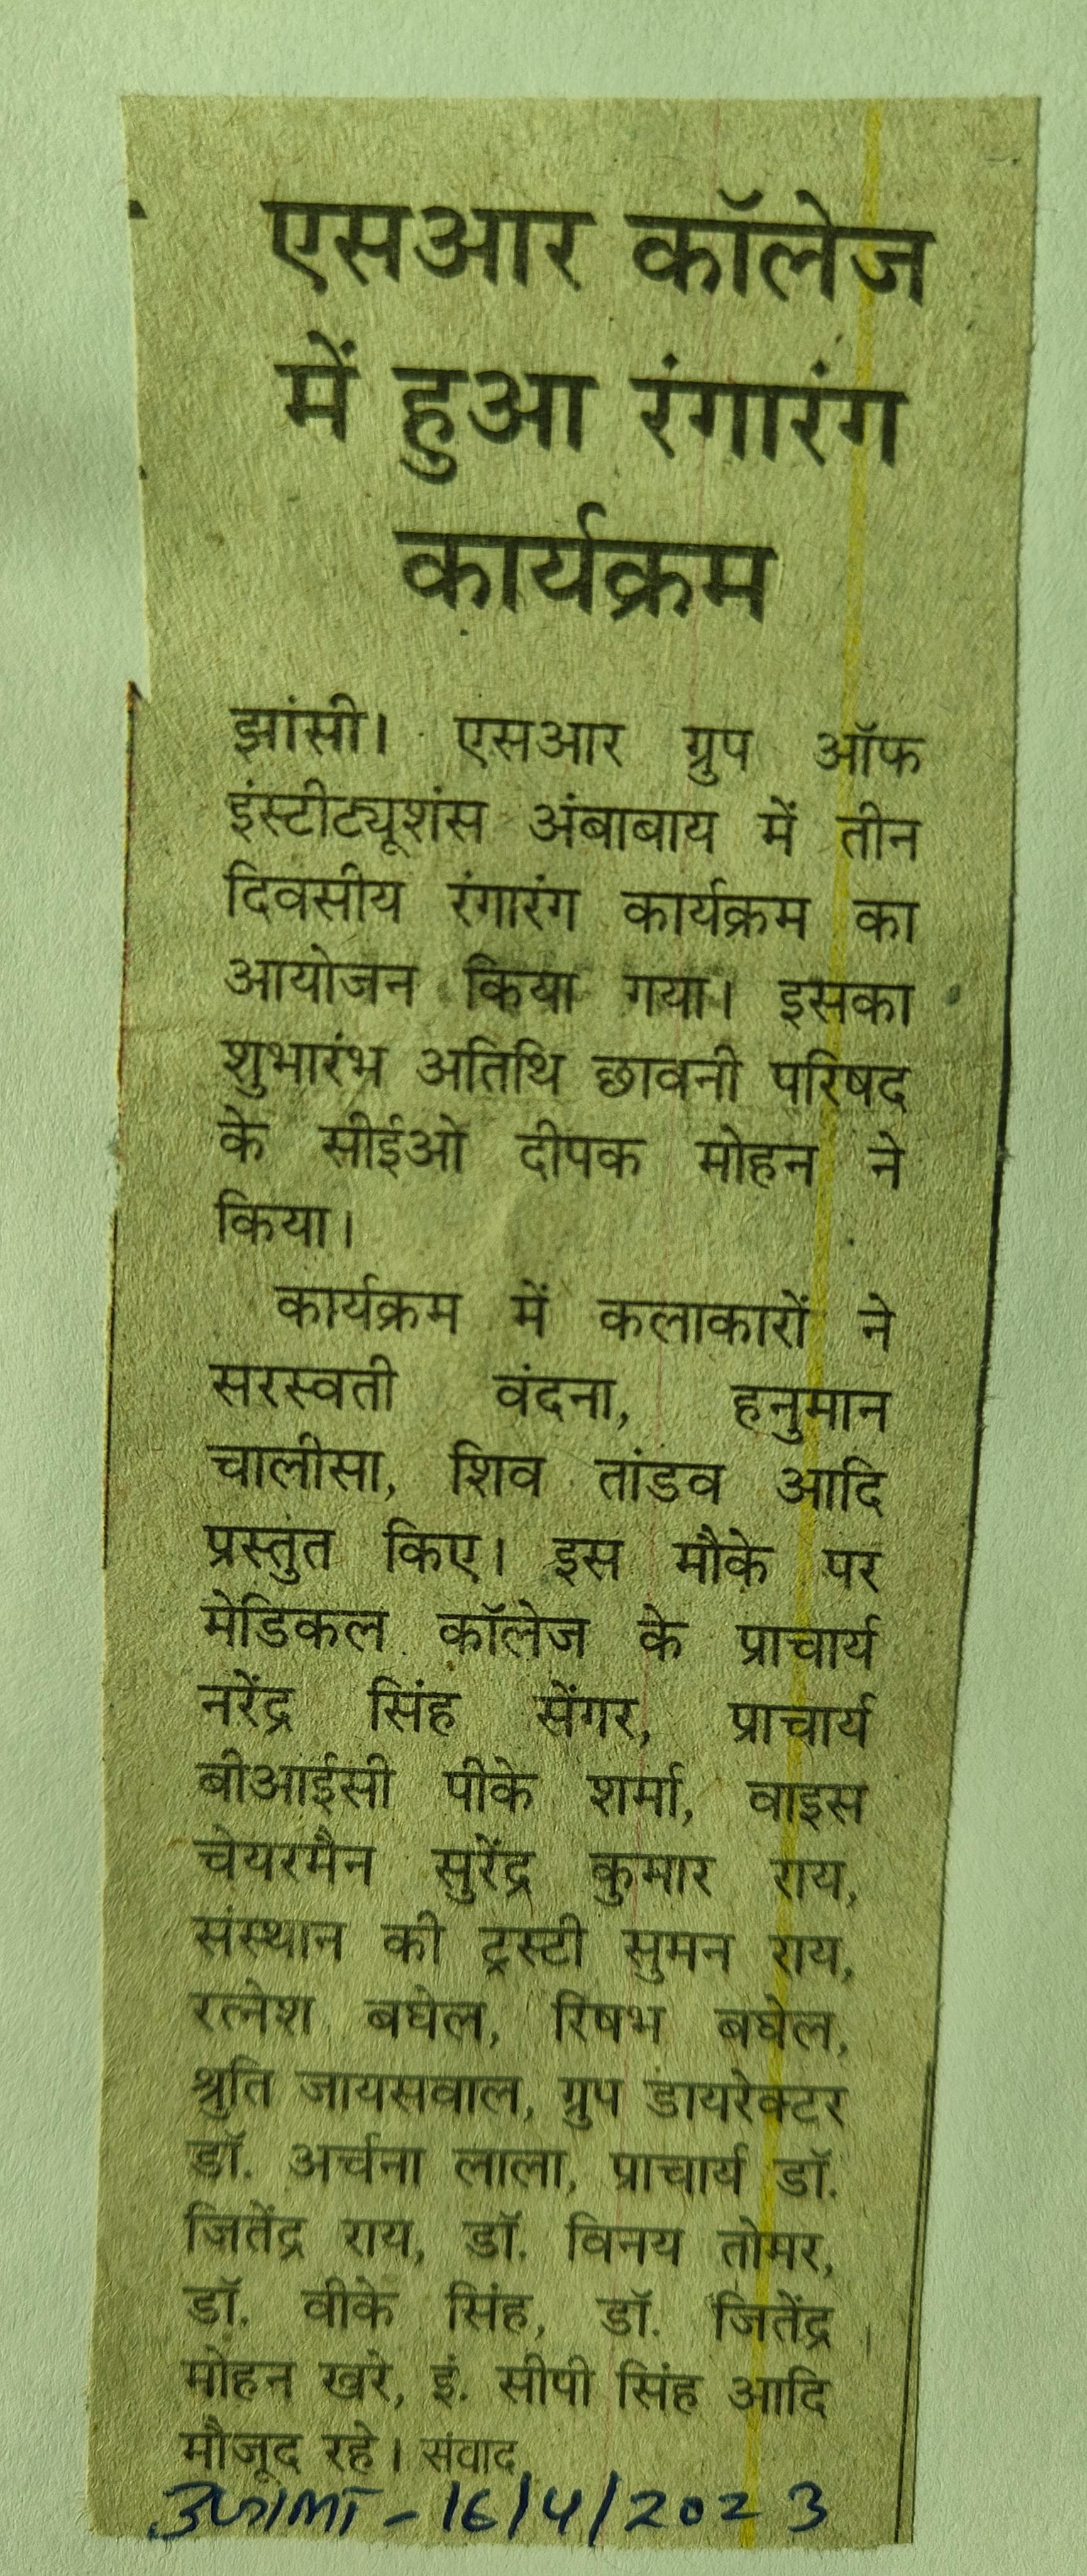 एसआर कॉलेज
में हुआ रंगारंग
कार्यक्रम
झांसी। एसआर ग्रुप ऑफ
इंस्टीट्यूशंस अंबाबाय में तीन
दिवसीय रंगारंग कार्यक्रम का
आयोजन किया गया। इसका
शुभारंभ अतिथि छावनी परिषद
के सीईओ दीपक मोहन ने
किया।
कार्यक्रम में कलाकारों ने
सरस्वती वंदना, हनुमान
चालीसा, शिव तांडव आदि
प्रस्तुत किए। इस मौके पर
मेडिकल कॉलेज के प्राचार्य
नरेंद्र सिंह सेंगर, प्राचार्य
बीआईसी पीके शर्मा, वाइस
चेयरमैन सुरेंद्र कुमार राय,
संस्थान की ट्रस्टी सुमन राय,
रत्नेश बघेल, रिषभ बघेल,
श्रुति जायसवाल, ग्रुप डायरेक्टर
डॉ. अर्चना लाला, प्राचार्य डॉ.
जितेंद्र राय, डॉ. विनय तोमर,
डॉ. वीके सिंह, डॉ. जितेंद्र
मोहन खरे, इं. सीपी सिंह आदि
मौजूद रहे। संवाद
- 16/4/2023